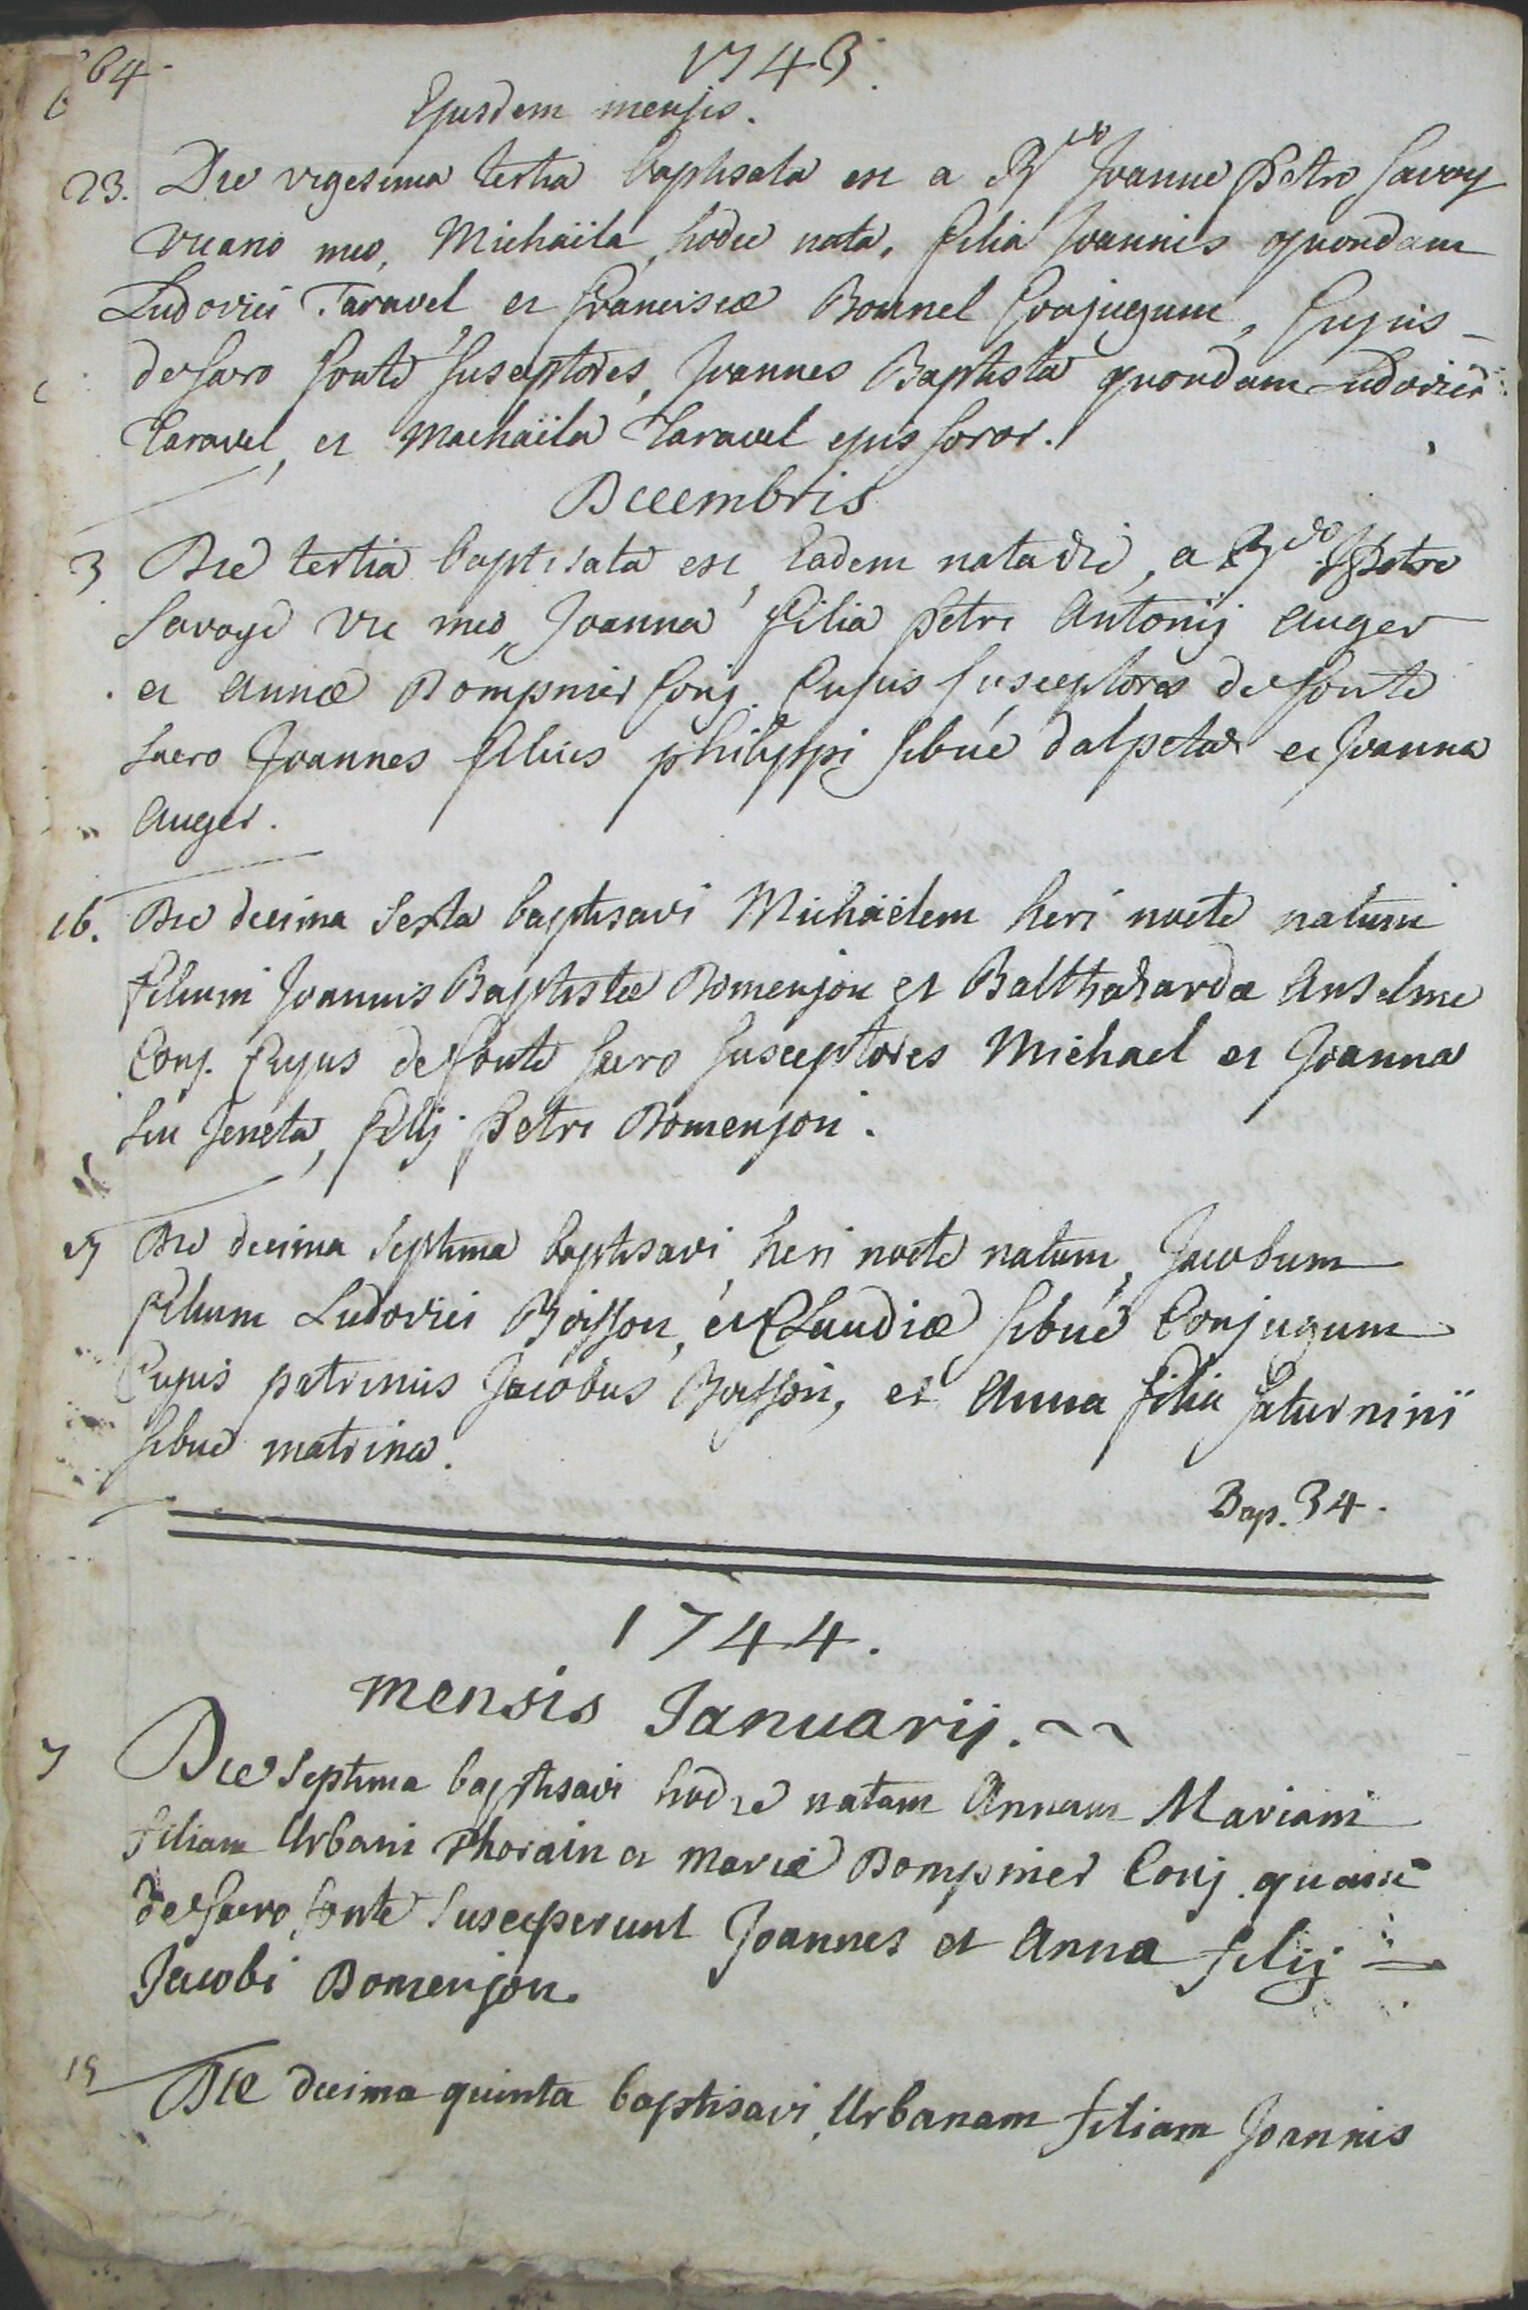 64.
1743.
Ejusdem mensis.
23. Die vigesima tertia baptisata est a Rdo Joanne Petro Savoy
vicario meo, Michaïla, hodie nata, filia Joannis quondam
Ludovici Taravel et Franciscæ Bonnel Conjugum, Cujus
de sacro fonte susceptores, Joannes Baptista quondam Ludovici
Taravel, et Machaïla Taravel ejus soror.
Decembris
3 Die tertia baptisata est, Eadem nata die, a Rdo J Petro
Savoye vic meo, Joanna filia Petri Antonij Auger
et Annæ Bompnier Conj. Cujus susceptores de fonte
sacro Joannes filius philippi sibué dalpetaz et Joanna
Auger.
16. Die decima sexta baptisavi Michäelem heri nocte natum
filium Joannis Baptistæ Domenjon et Balthazardæ Anselme
Conj. Cujus de fonte sacro susceptores Michael et Joanna
seu Jeneta, filij Petri Domenjon.
17 Die decima septima baptisavi, heri nocte natum, Jacobum
filium Ludovici Boisson, et Claudiæ sibué Conjugum
Cujus patrinus Jacobus Boisson, et Anna filia saturninï
sibué matrina.
Bap. 34.
1744.
mensis Januarij.
7 Die septima baptisavi hodie natam Annam Mariam
filiam Urbani Thorain et mariæ Bompnier Conj. quam
de sacro fonte susceperunt Joannes et Anna filij
Jacobi Domenjon.
15 Die decima quinta baptisavi Urbanam filiam Joannis